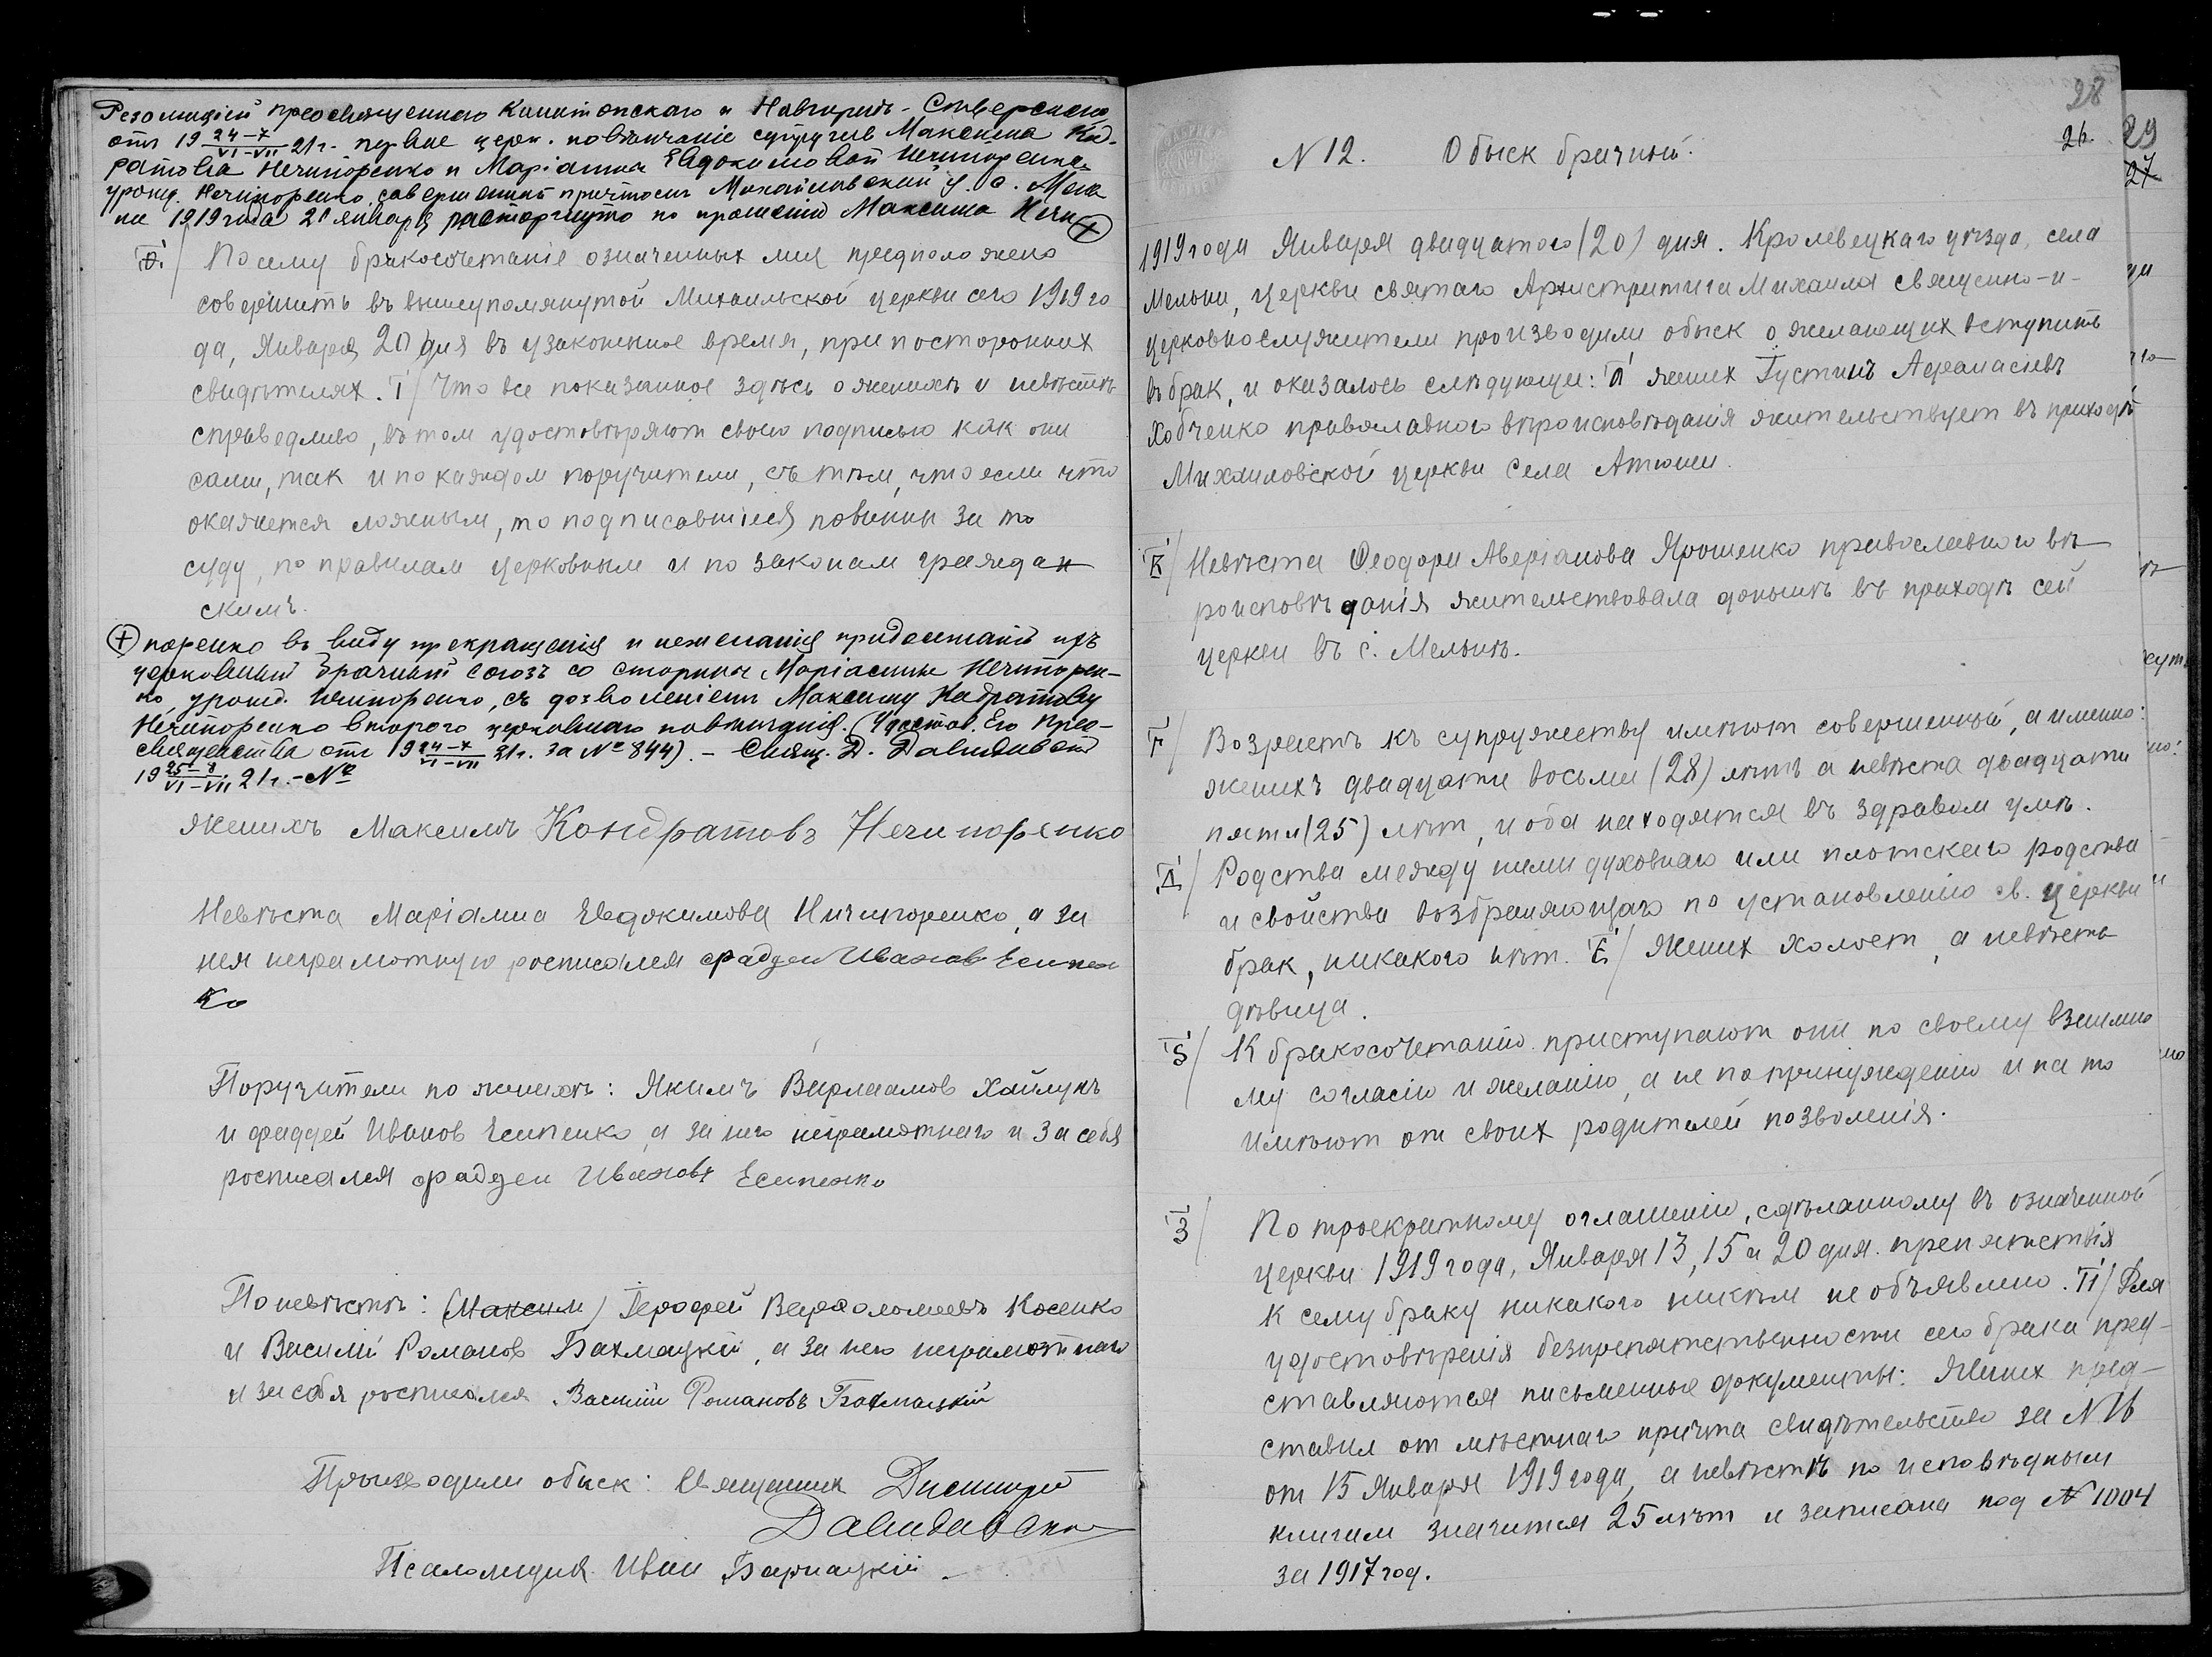 Резолюціей преосвященнаго Конотопскаго и Новгород-Сѣверскаго
отъ 19 24–7/VI–VII 21 г. первое церк. повѣнчаніе супругов Максима Кад-
ратова Нечипоренко и Маріамны Евдокимовой Нечипоренко
урожд. Нечипоренко, совершенное причтомъ Михайловской ц. с. Мель
ни 1919 года 20 января расторгнуто по прошенію Максима Нечи ⊕
Ѳ/ Посему бракосочетаніе означенных лиц предположено
совершить въ вышеупомянутой Михаильской церкви сего 1919 го
да, Января 20 дня въ узаконенное время, при посторонних
свидѣтелях. І/ Что все показанное здѣсь о женихѣ и невѣстѣ
справедливо, въ том удостовѣряют своею подписью как они
сами, так и по каждом поручители, съ тѣм, что если что
окажется ложным, то подписавшіеся повинны за то
суду, по правилам церковным и по законам граждан
скимъ.
⊕ поренко въ виду прекращенія и нежеланія продолжать ихъ
церковный брачный союзъ со стороны Маріамны Нечипорен-
ко, урожд. Нечипоренко, съ дозволеніемъ Максиму Кадратову
Нечипоренко второго церковнаго повѣнчанія. (Удостов. Его Прео-
священства отъ 19 24–7/VI–VII 21 г. за № 844). – Свящ. Д. Давидовскій
19 25–8/VI–VII 21 г. – №
Женихъ Максимъ Кондратовъ Нечипоренко
Невѣста Маріамна Евдокимова Ничипоренко, а за
нея неграмотную росписался Фаддей Ивановъ Есипен
ко
Поручители по женихѣ: Якимъ Варлаамов Хайлукъ
и Фаддей Иванов Есипенко, а за него неграмотнаго и за себя
росписался Фаддеи Ивановъ Есипенко
По невѣстѣ: (Максим) Герофей Варфоломеевъ Косенко
и Василій Романов Бахмацкій, а за него неграмотнаго
и за себя росписался Василій Романовъ Бахмацкій
Производили обыск: Священник Димитрій
Давидовскій
Псаломщик Иван

28
26.
29
27
N 12. Обыск брачный.
1919 года Января двадцатого (20) дня. Кролевецкаго уѣзда, села
Мельни, церкви святаго Архистратига Михаила священно-и-
церковнослужители производили обыск о желающих вступить
въ брак, и оказалось слѣдующее: а҃ жених Густинъ Афанасіевъ
Хобченко православного вѣроисповѣданія жительствует въ приходѣ
Михаиловской церкви села Атюши.
В/ Невѣста Ѳеодора Аверіанова Ярошенко православного вѣ
роисповѣданія жительствовала донынѣ въ приходѣ сей
церкви въ с. Мельнѣ.
Г/ Возрастъ къ супружеству имѣют совершенный, а именно:
женихъ двадцати восьми (28) лѣтъ а невѣста двадцати
пяти (25) лѣт, и оба находятся въ здравом умѣ.
Д/ Родства между ними духовнаго или плотскаго родства
и свойства возбраняющаго по установленію св. церкви
брак, никакого нѣт. Е/ Жених холост, а невѣста
дѣвица.
Ѕ/ К бракосочетанію приступают они по своему взаимно
му согласію и желанію, а не по принужденію и на то
имѣют от своих родителей позволенія.
З/ По троекратному оглашенію, сдѣланному въ означенной
церкви 1919 года, Января 13, 15 и 20 дня. препятствія
к сему браку никакого никѣм не объявлено. И/ Для
удостовѣренія безпрепятственности сего брака пред-
ставляются письменные документы: Жених пред-
ставил от мѣстнаго причта свидѣтельство за N 16
от 15 Января 1919 года, а невѣстѣ по исповѣдным
книгам значится 25 лѣт и записана под N 1004
за 1917 год.